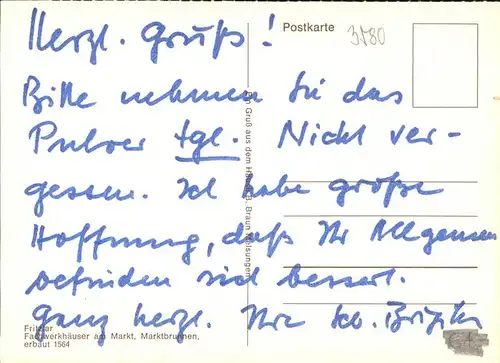 Herzl. Gruß!
Postkarte
3580
Bitte nehmen Sie das
Pulver tgl. Nicht ver-
gessen. Ich habe große
Hoffnung, daß Ihr Allgemein
befinden sich bessert.
Ganz herzl. Ihre Schw. Brigitte
Ein Gruß aus dem Hause B. Braun Melsungen
Fritzlar
Fachwerkhäuser am Markt, Marktbrunnen,
erbaut 1564